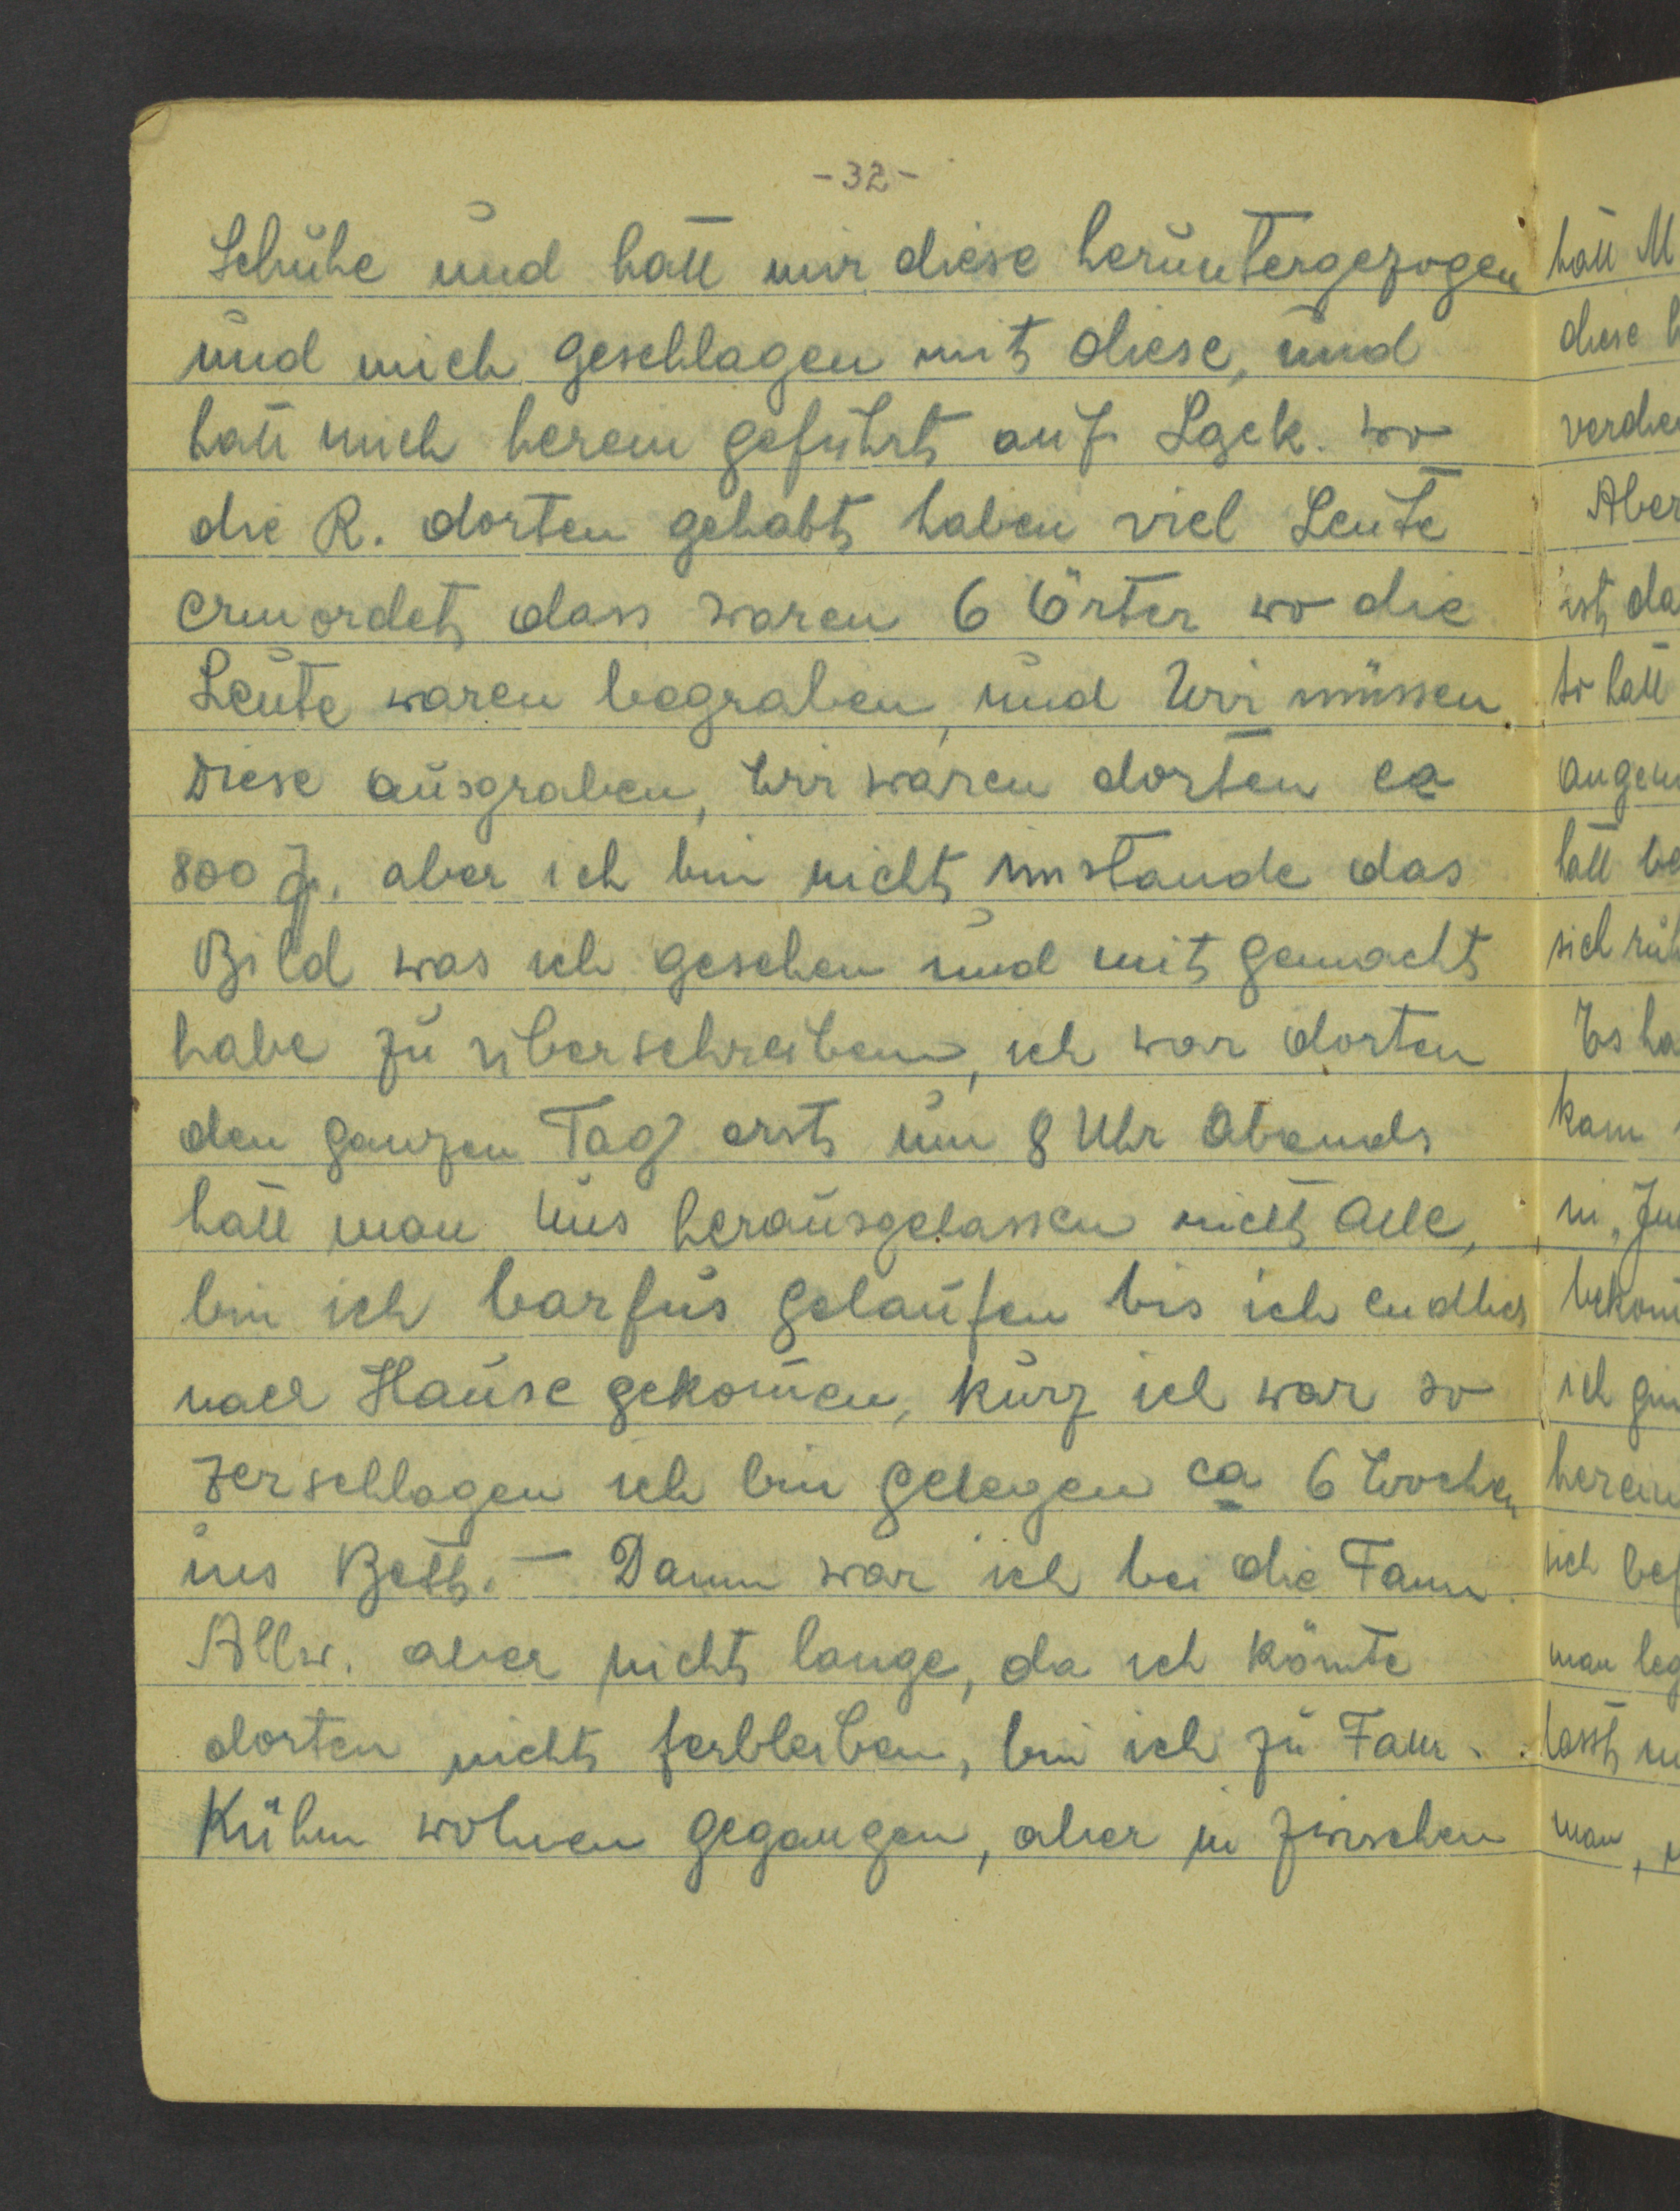 -32-
Schuhe und hatt mir diese heruntergezogen
und mich geschlagen mit diese, und
hatt mich herein geführt auf Lgck. wo
die R. dorten gehabt haben viel Leute
ermordet dass waren 6 Örter wo die
Leute waren begraben, und Wir müssen
Diese ausgraben, Wir waren dorten ca
800 J. aber ich bin nicht imstande das
Bild was ich gesehen und mit gemacht
habe zu überschreiben, ich war dorten
den ganzen Tag erst um 8 Uhr Abends
hatt man Uns herausgelassen nicht Alle,
bin ich barfus gelaufen bis ich endlich
nach Hause gekom̄en, kurz ich war so
zerschlagen ich bin gelegen ca 6 Wochen
ins Bett. - Dann war ich bei die Fam.
Allw. aber nicht lange, da ich könnte
dorten nicht ferbleiben, bin ich zu Fam.
Kühm wohnen gegangen, aber in zwischen
hatt M
diese
Aber
ist da
so hatt
hatt
Es ha
kam
in
ich
herein
sich
man
man,